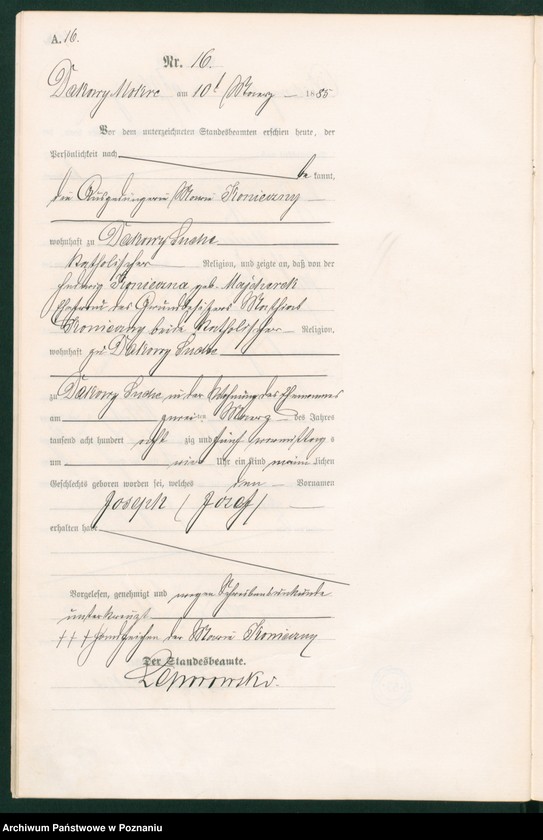 A. 16.
Nr. 16.
Dakowy Mokre am 10t März 1885
Vor dem unterzeichneten Standesbeamten erschien heute, der
Persönlichkeit nach
be kannt,
die Ausgedingerin Marie Konieczny
wohnhaft zu Dakowy Suche
katholischer Religion, und zeigte an, daß von der
Hedwig Konieczna geb. Majchrzak
Ehefrau des Grundbesitzers Mathias
Konieczny beide katholischer Religion,
wohnhaft zu Dakowy Suche
zu Dakowy Suche, in der Wohnung des Ehemannes
am zweiten März des Jahres
tausend acht hundert acht zig und fünf vormittags
um vier Uhr ein Kind männlichen
Geschlechts geboren worden sei, welches den Vornamen
Joseph (Józef)
erhalten habe
Vorgelesen, genehmigt und wegen Schreibensunkunde
unterkreuzt
+++ Handzeichen der Marie Konieczny
Der Standesbeamte.
Archiwum Państwowe w Poznaniu